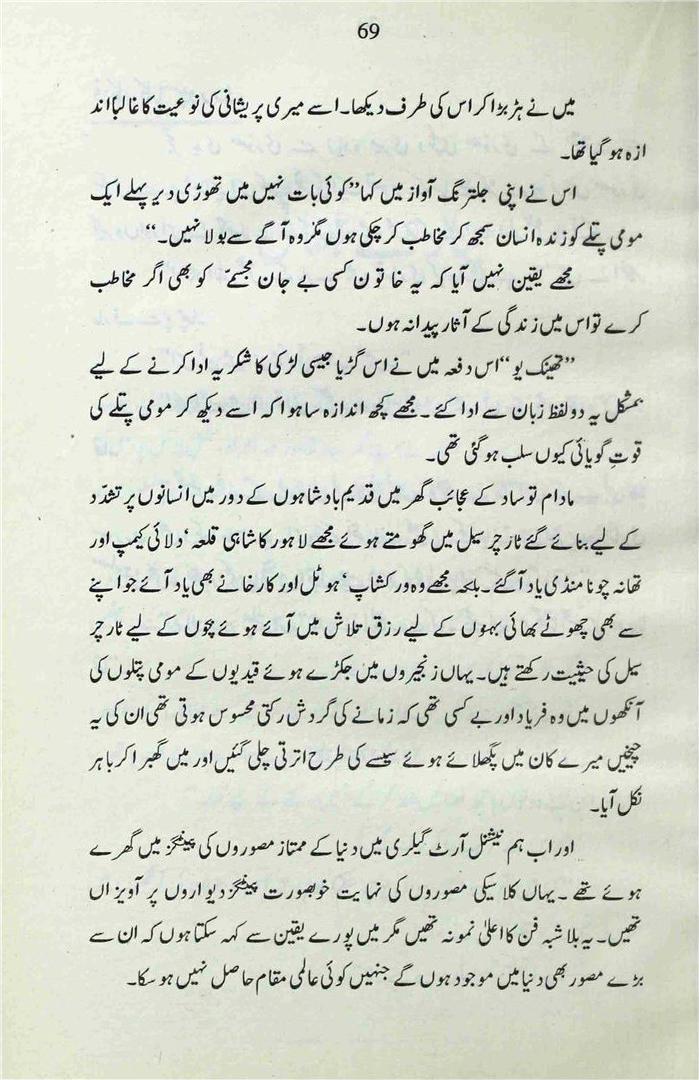 69
میں نے ہڑبڑا کر اس کی طرف دیکھا۔ اسے میری پریشانی کی نوعیت کا غالباً اند
ازہ ہو گیا تھا۔
اس نے اپنی جلترنگ آواز میں کہا ”کوئی بات نہیں میں تھوڑی دیر پہلے ایک
مومی پتلے کو زندہ انسان سمجھ کر مخاطب کر چکی ہوں مگر وہ آگے سے بولا نہیں۔“
مجھے یقین نہیں آیا کہ یہ خاتون کسی بے جان مجسمّے کو بھی اگر مخاطب
کرے تو اس میں زندگی کے آثار پیدا نہ ہوں۔
”تھینک یو“ اس دفعہ میں نے اس گڑیا جیسی لڑکی کا شکریہ ادا کرنے کے لیے
بمشکل یہ دو لفظ زبان سے ادا کئے۔ مجھے کچھ اندازہ سا ہوا کہ اسے دیکھ کر مومی پتلے کی
قوتِ گویائی کیوں سلب ہو گئی تھی۔
مادام توساد کے عجائب گھر میں قدیم بادشاہوں کے دور میں انسانوں پر تشدّد
کے لیے بنائے گئے ٹارچر سیل میں گھومتے ہوئے مجھے لاہور کا شاہی قلعہ‘ دلائی کیمپ اور
تھانہ چونا منڈی یاد آگئے۔ بلکہ مجھے وہ ورکشاپ‘ ہوٹل اور کارخانے بھی یاد آئے جو اپنے
سے بھی چھوٹے بھائی بہنوں کے لیے رزق تلاش میں آئے ہوئے بچوں کے لیے ٹارچر
سیل کی حیثیت رکھتے ہیں۔ یہاں زنجیروں میں جکڑے ہوئے قیدیوں کے مومی پتلوں کی
آنکھوں میں وہ فریاد اور بے کسی تھی کہ زمانے کی گردش رکتی محسوس ہوتی تھی ان کی یہ
چیخیں میرے کان میں پگھلائے ہوئے سیسے کی طرح اترتی چلی گئیں اور میں گھبرا کر باہر
نکل آیا۔
اور اب ہم نیشنل آرٹ گیلری میں دنیا کے ممتاز مصوروں کی پینٹگز میں گھرے
ہوئے تھے۔ یہاں کلاسیکی مصوروں کی نہایت خوبصورت پینٹگز دیواروں پر آویزاں
تھیں۔ یہ بلاشبہ فن کا اعلیٰ نمونہ تھیں مگر میں پورے یقین سے کہہ سکتا ہوں کہ ان سے
بڑے مصور بھی دنیا میں موجود ہوں گے جنہیں کوئی عالمی مقام حاصل نہیں ہو سکا۔